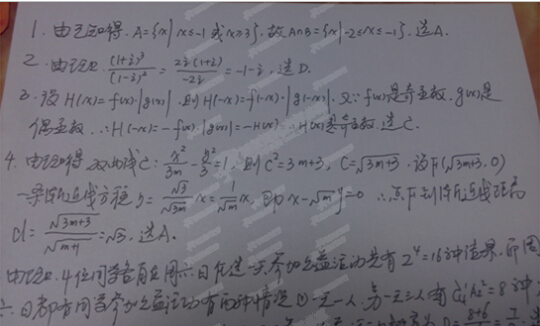 1. 由已知得. A={x|x≤-1或x≥3}. 故A∩B={x|-2≤x≤-1}. 选A.
2. 由题 (1+i)³/(1-i)² = 2i(1+i)/-2i = -1-i. 选D.
3. 设H(x)=f(x)·|g(x)|. 则H(-x)=f(-x)·|g(-x)|. 又∵f(x)是奇函数. g(x)是
偶函数. ∴H(-x)=-f(x)·|g(x)|=-H(x) ∴H(x)是奇函数. 选C.
4. 由已知得双曲线C: x²/3m - y²/3 =1. 则c²=3m+3, c=√3m+3. 设F(√3m+3, 0)
一条渐近线方程 y=√3/√3m x=1/√m x. 即x-√m y=0 ∴点F到渐近线距离
d=√3m+3/√m+1=√3. 选A.
由题 4位同学各自在周六日任选一天参加公益活动共有2⁴=16种结果. 而周
六日都有同学参加公益活动有两种情况①一天一人 另一天三人有C₄¹A₂²=8种
8+6